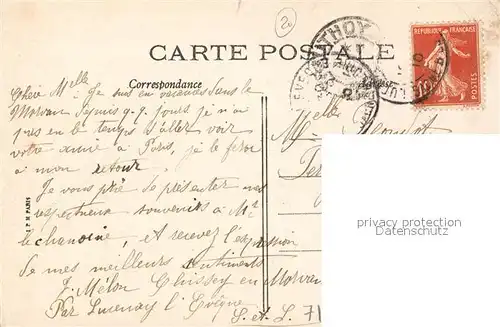 20
CARTE POSTALE
Correspondance
RÉPUBLIQUE FRANÇAISE
POSTES
10
Chère Melle Je suis en vacances dans le
Morvan depuis q.q. jours, je n'ai
pas eu le temps d'aller voir
votre amie à Paris, je le ferai
à mon retour.
Je vous prie de présenter mes
respectueux souvenirs à Mr
le chanoine, et recevez l'expression
de mes meilleurs sentiments
J. Mélon Chissey en Morvan
Par Lucenay l'Evêque
S. et L. 71
Melle
I P M PARIS
privacy protection
Datenschutz